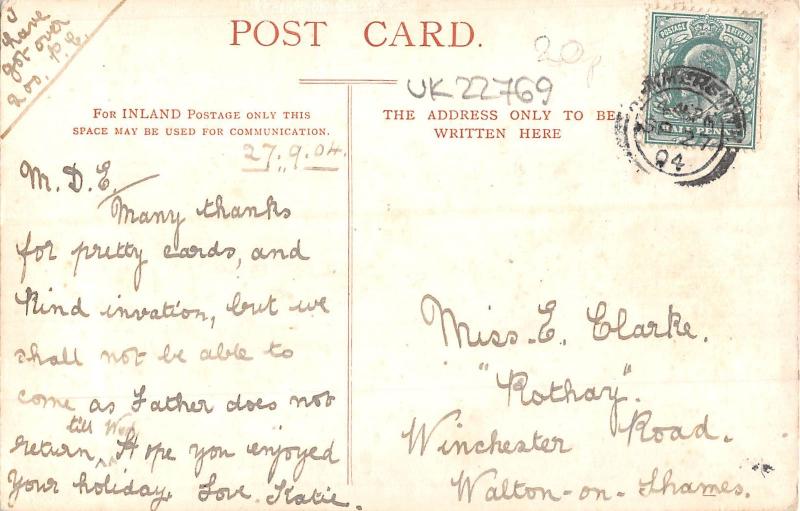 I
have
got over
200. P.C.
POST CARD.
20p
UK22769
FOR INLAND POSTAGE ONLY THIS
SPACE MAY BE USED FOR COMMUNICATION.
THE ADDRESS ONLY TO BE
WRITTEN HERE
POSTAGE & REVENUE
HALFPENNY
SP 27
04
27.9.04.
M.D.E.
Many thanks
for pretty cards, and
kind invation, but we
shall not be able to
come as Father does not
till Wed
return. Hope you enjoyed
your holiday. Love. Katie.
Miss. E. Clarke.
"Rothay".
Winchester Road.
Walton-on-Thames.